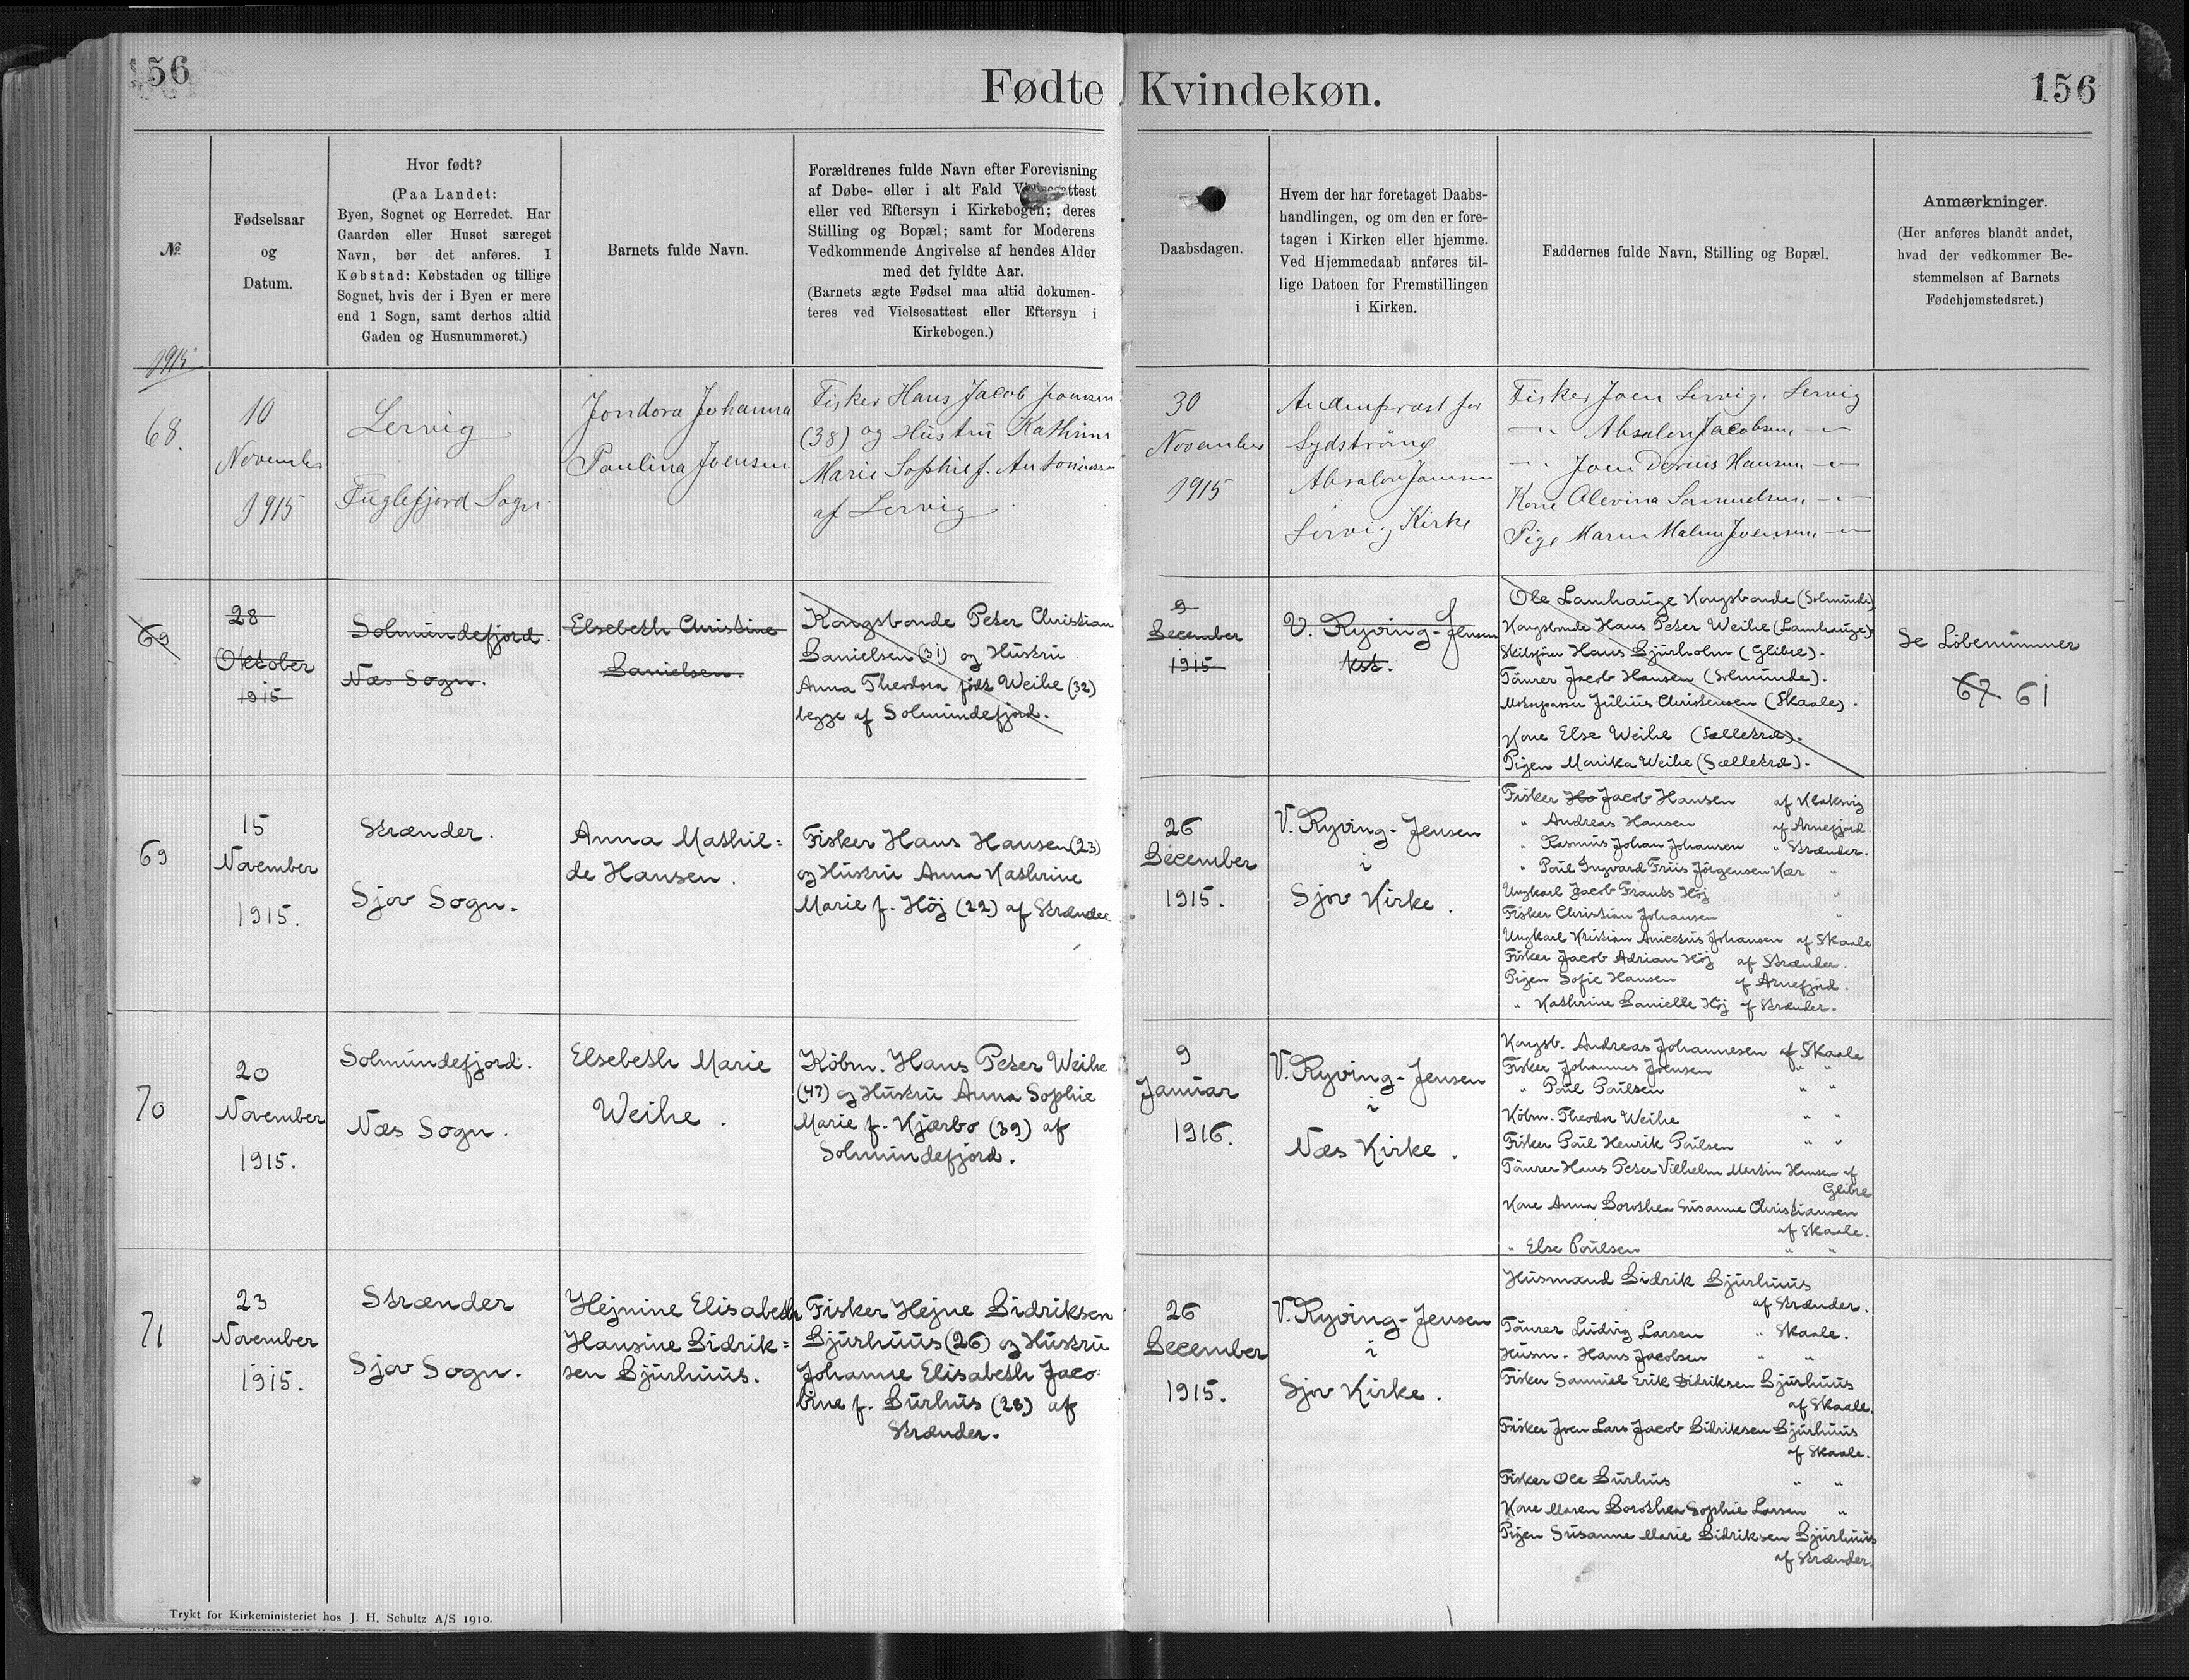 156
Fødte Kvindekøn.
156
№
Fødselsaar
og
Datum.
Hvor født?
(Paa Landet:
Byen, Sognet og Herredet. Har
Gaarden eller Huset særeget
Navn, bør det anføres. I
Købstad: Købstaden og tillige
Sognet, hvis der i Byen er mere
end 1 Sogn, samt derhos altid
Gaden og Husnummeret.)
Barnets fulde Navn.
Forældrenes fulde Navn efter Forevisning
af Døbe- eller i alt Fald Vielsesattest
eller ved Eftersyn i Kirkebogen; deres
Stilling og Bopæl; samt for Moderens
Vedkommende Angivelse af hendes Alder
med det fyldte Aar.
(Barnets ægte Fødsel maa altid dokumen-
teres ved Vielsesattest eller Eftersyn i
Kirkebogen.)
Daabsdagen.
Hvem der har foretaget Daabs-
handlingen, og om den er fore-
tagen i Kirken eller hjemme.
Ved Hjemmedaab anføres til-
lige Datoen for Fremstillingen
i Kirken.
Faddernes fulde Navn, Stilling og Bopæl.
Anmærkninger.
(Her anføres blandt andet,
hvad der vedkommer Be-
stemmelsen af Barnets
Fødehjemstedsret.)
1915
68.
10
November
1915
Lervig
Fuglefjord Sogn.
Jondora Johanna
Paulina Joensen
Fisker Hans Jacob Joensen
(38) og Hustru Kathrine
Marie Sophie f. Antoniussen
af Lervig
30
November
1915
Sydstrømø
Absalon Joensen
Lervig Kirke
Fisker Joen Lervig, Lervig
-"- Absalon Jacobsen, -"-
-"- Joen Dorius Hansen, -"-
Kone Olevina Samuelsen, -"-
Pige Maren Malene Joensen, -"-
69
28
Oktober
1915
Solmundefjord.
Næs Sogn.
Elsebeth Christine
Danielsen.
Kongsbonde Peter Christian
Danielsen (31) og Hustru
Anna Theodora født Weihe (32)
begge af Solmundefjord.
9
December
1915
V. Ryving-Jensen
kst.
Ole Lamhauge Kongsbonde (Solmunde)
Kongsbonde Hans Peter Weihe (Lamhauge)
Hans Djurholm (Glibre).
Tömrer Jacob Hansen (Solmunde).
Motorpasser Julius Christensen (Skaale).
Kone Else Weihe (Selletræ).
Pigen Monika Weihe (Selletræ).
Se Löbenummer
67 61
69
15
November
1915.
Strænder.
Sjov Sogn.
Anna Mathil=
de Hansen.
Fisker Hans Hansen (23)
og Hustru Anna Kathrine
Marie f. Höj (22) af Strænder
26
December
1915.
V. Ryving-Jensen
i
Sjov Kirke.
Fisker Ha Jacob Hansen af Klaksvig
" Andreas Hansen af Arnefjord.
" Rasmus Johan Johansen " Strænder.
" Poul Ingvard Friis Jörgensen Kær "
Ungkarl Jacob Frants Höj "
Fisker Christian Johansen "
Ungkarl Kristian Anicetus Johansen af Skaale
Fisker Jacob Adrian Höj af Strænder.
Pigen Sofie Hansen af Arnefjord.
" Kathrine Danielle Höj af Strænder.
70
20
November
1915.
Solmundefjord.
Næs Sogn.
Elsebeth Marie
Weihe.
Köbm. Hans Peter Weihe
(47) og Hustru Anna Sophie
Marie f. Kjærbo (39) af
Solmundefjord.
9
Januar
1916.
V. Ryving-Jensen
i
Næs Kirke.
Kongsb. Andreas Johannesen af Skaale
Fisker Johannes Joensen " "
" Poul Poulsen " "
Köbm. Theodor Weihe " "
Fisker Poul Henrik Poulsen " "
Tömrer Hans Peter Vilhelm Martin Hansen af
Glibre
Kone Anna Dorothea Susanne Christiansen
af Skaale.
" Else Poulsen " "
71
23
November
1915.
Strænder
Sjov Sogn.
Hejnine Elisabeth
Hansine Didrik=
sen Djurhuus.
Fisker Hejne Didriksen
Djurhuus (26) og Hustru
Johanne Elisabeth Jaco=
bine f. Durhus (28) af
Strænder.
26
December
1915.
V. Ryving-Jensen
i
Sjov Kirke.
Husmand Didrik Djurhuus
af Strænder.
Tömrer Ludvig Larsen " Skaale.
Husm. Hans Jacobsen " "
Fisker Samuel Erik Didriksen Djurhuus
af Skaale.
Fisker Joen Lars Jacob Didriksen Djurhuus
af Skaale.
Fisker Ole Durhus " "
Kone Maren Dorothea Sophie Larsen "
Pigen Susanne Marie Didriksen Djurhuus
af Strænder.
Trykt for Kirkeministeriet hos J. H. Schultz A/S 1910.